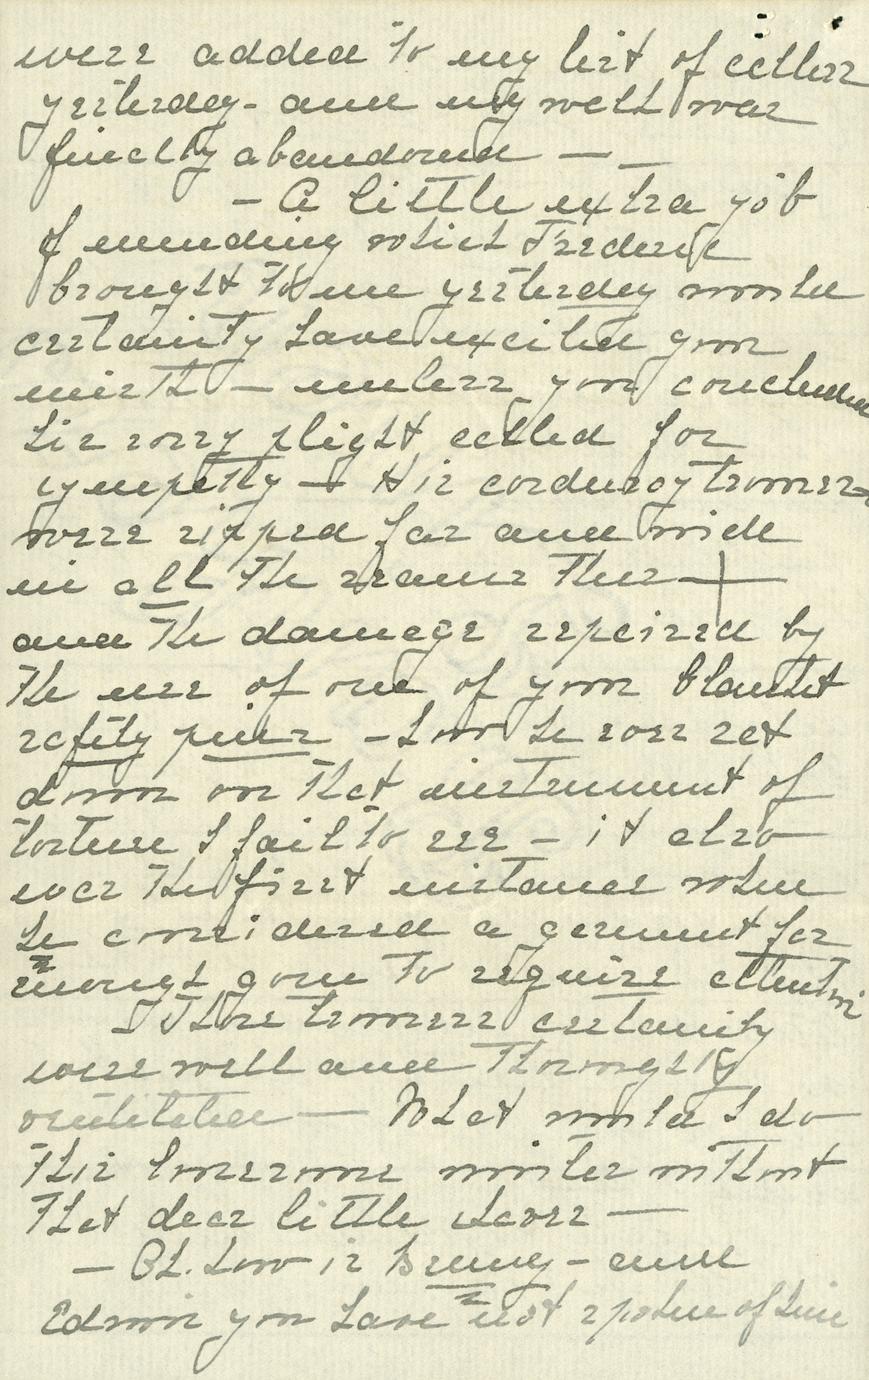 were added to my list of callers
yesterday - and my well was
finally abandoned — —
- A little extra job
of mending which Frederic
brought to me yesterday would
certainly have excited your
mirth — unless you concluded
his sorry plight called for
sympathy — His corduroy trousers
were ripped far and wide
in all the seams there
and the damage repaired by
the use of one of your blanket
safety pins - how he ever sat
down on that instrument of
torture I fail to see - it also
was the first instance when
he considered a garment far
enough gone to require attention
- Those trousers certainly
were well and thoroughly
ventilated — What would I do
this lonesome winter without
that dear little shaver —
- Oh. how is Benny - and
Edwin you have not spoken of him